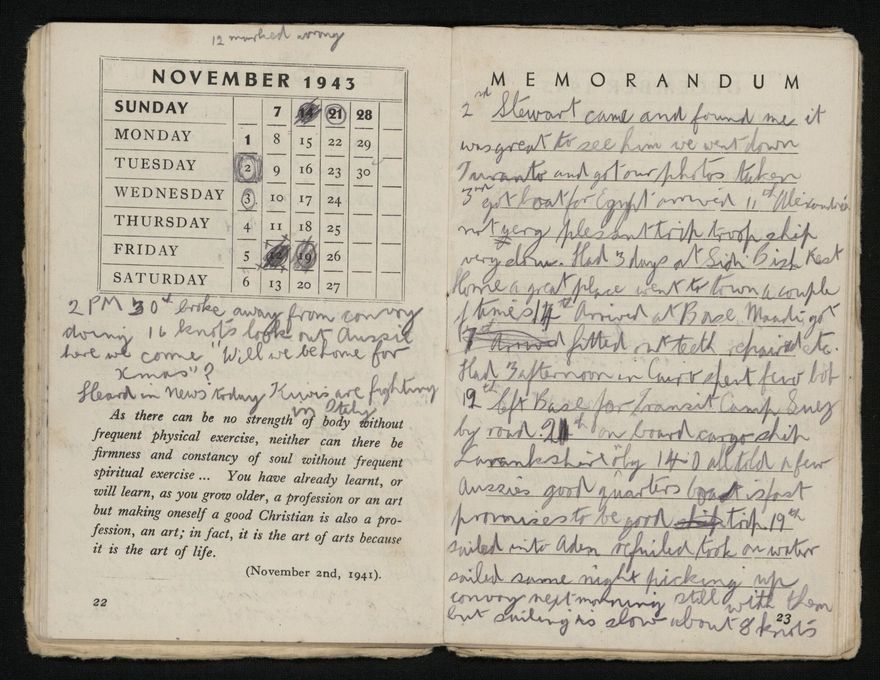 12 marked wrong
NOVEMBER 1943
SUNDAY 7 14 21 28
MONDAY 1 8 15 22 29
TUESDAY 2 9 16 23 30
WEDNESDAY 3 10 17 24
THURSDAY 4 11 18 25
FRIDAY 5 12 19 26
SATURDAY 6 13 20 27
2 PM 30th broke away from convoy
doing 16 knots look out Aussie
here we come "Will we be home for
Xmas"?
Heard in news today Kiwis are fighting
in Italy
As there can be no strength of body without
frequent physical exercise, neither can there be
firmness and constancy of soul without frequent
spiritual exercise ... You have already learnt, or
will learn, as you grow older, a profession or an art
but making oneself a good Christian is also a pro-
fession, an art; in fact, it is the art of arts because
it is the art of life.
(November 2nd, 1941).
22
MEMORANDUM
2nd Stewart came and found me it
was great to see him we went down
and got our photos taken
3rd got boat for Egypt arrived 11th Alexandria
not very plesant trip troop ship
very slow. Had 3 days at Sidi Bish Rest
Home a great place went to town a couple
of times 14th Arrived at Base Maadi got
fitted out teeth repaired etc.
Had 3 afternoon in Cairo spent few bob
19th left Base for Transit Camp Suez
by road. 21th on board cargo ship
140 all told a few
Aussies good quarters boat is fast
promises to be good ship trip 19th
sailed into Aden refuiled took on water
sailed same night picking up
convoy next morning still with them
but sailing is slow about 8 knots
23